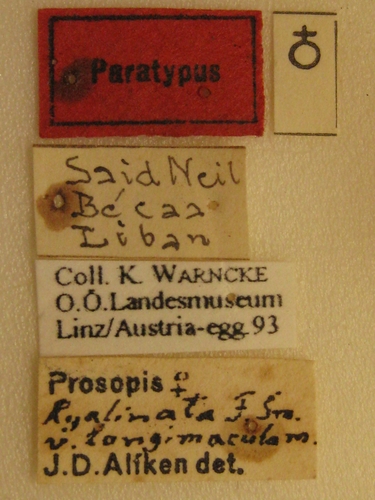 Paratypus
♀
Said Neil
Bécaa
Liban
Coll. K. WARNCKE
O.Ö.Landesmuseum
Linz/Austria-egg.93
Prosopis ♀
Hyalinata F. Sm.
v. longimaculam.
J.D. Alfken det.